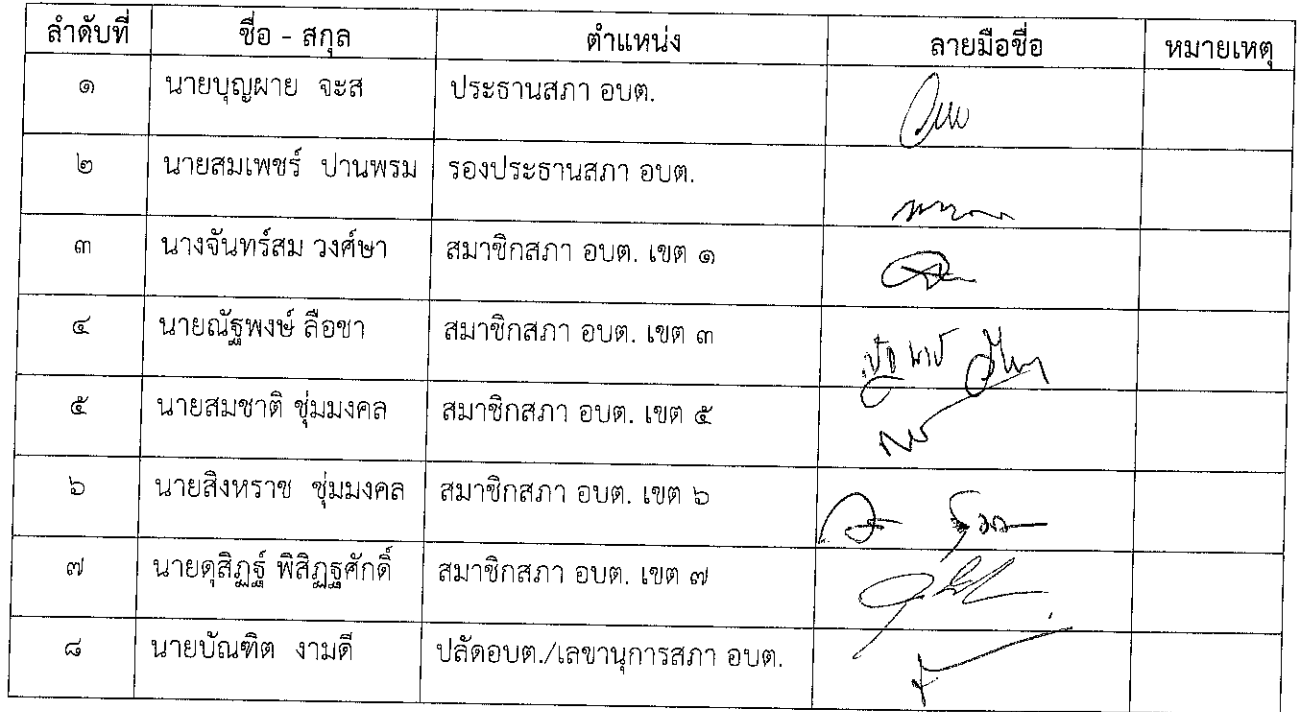 ลำดับที่ ชื่อ - สกุล ตำแหน่ง ลายมือชื่อ หมายเหตุ
๑ นายบุญผาย จะส ประธานสภา อบต.
๒ นายสมเพชร์ ปานพรม รองประธานสภา อบต.
๓ นางจันทร์สม วงศ์ษา สมาชิกสภา อบต. เขต ๑
๔ นายณัฐพงษ์ ลือชา สมาชิกสภา อบต. เขต ๓
๕ นายสมชาติ ชุ่มมงคล สมาชิกสภา อบต. เขต ๕
๖ นายสิงหราช ชุ่มมงคล สมาชิกสภา อบต. เขต ๖
๗ นายดุสิฏฐ์ พิสิฏฐศักดิ์ สมาชิกสภา อบต. เขต ๗
๘ นายบัณฑิต งามดี ปลัดอบต./เลขานุการสภา อบต.